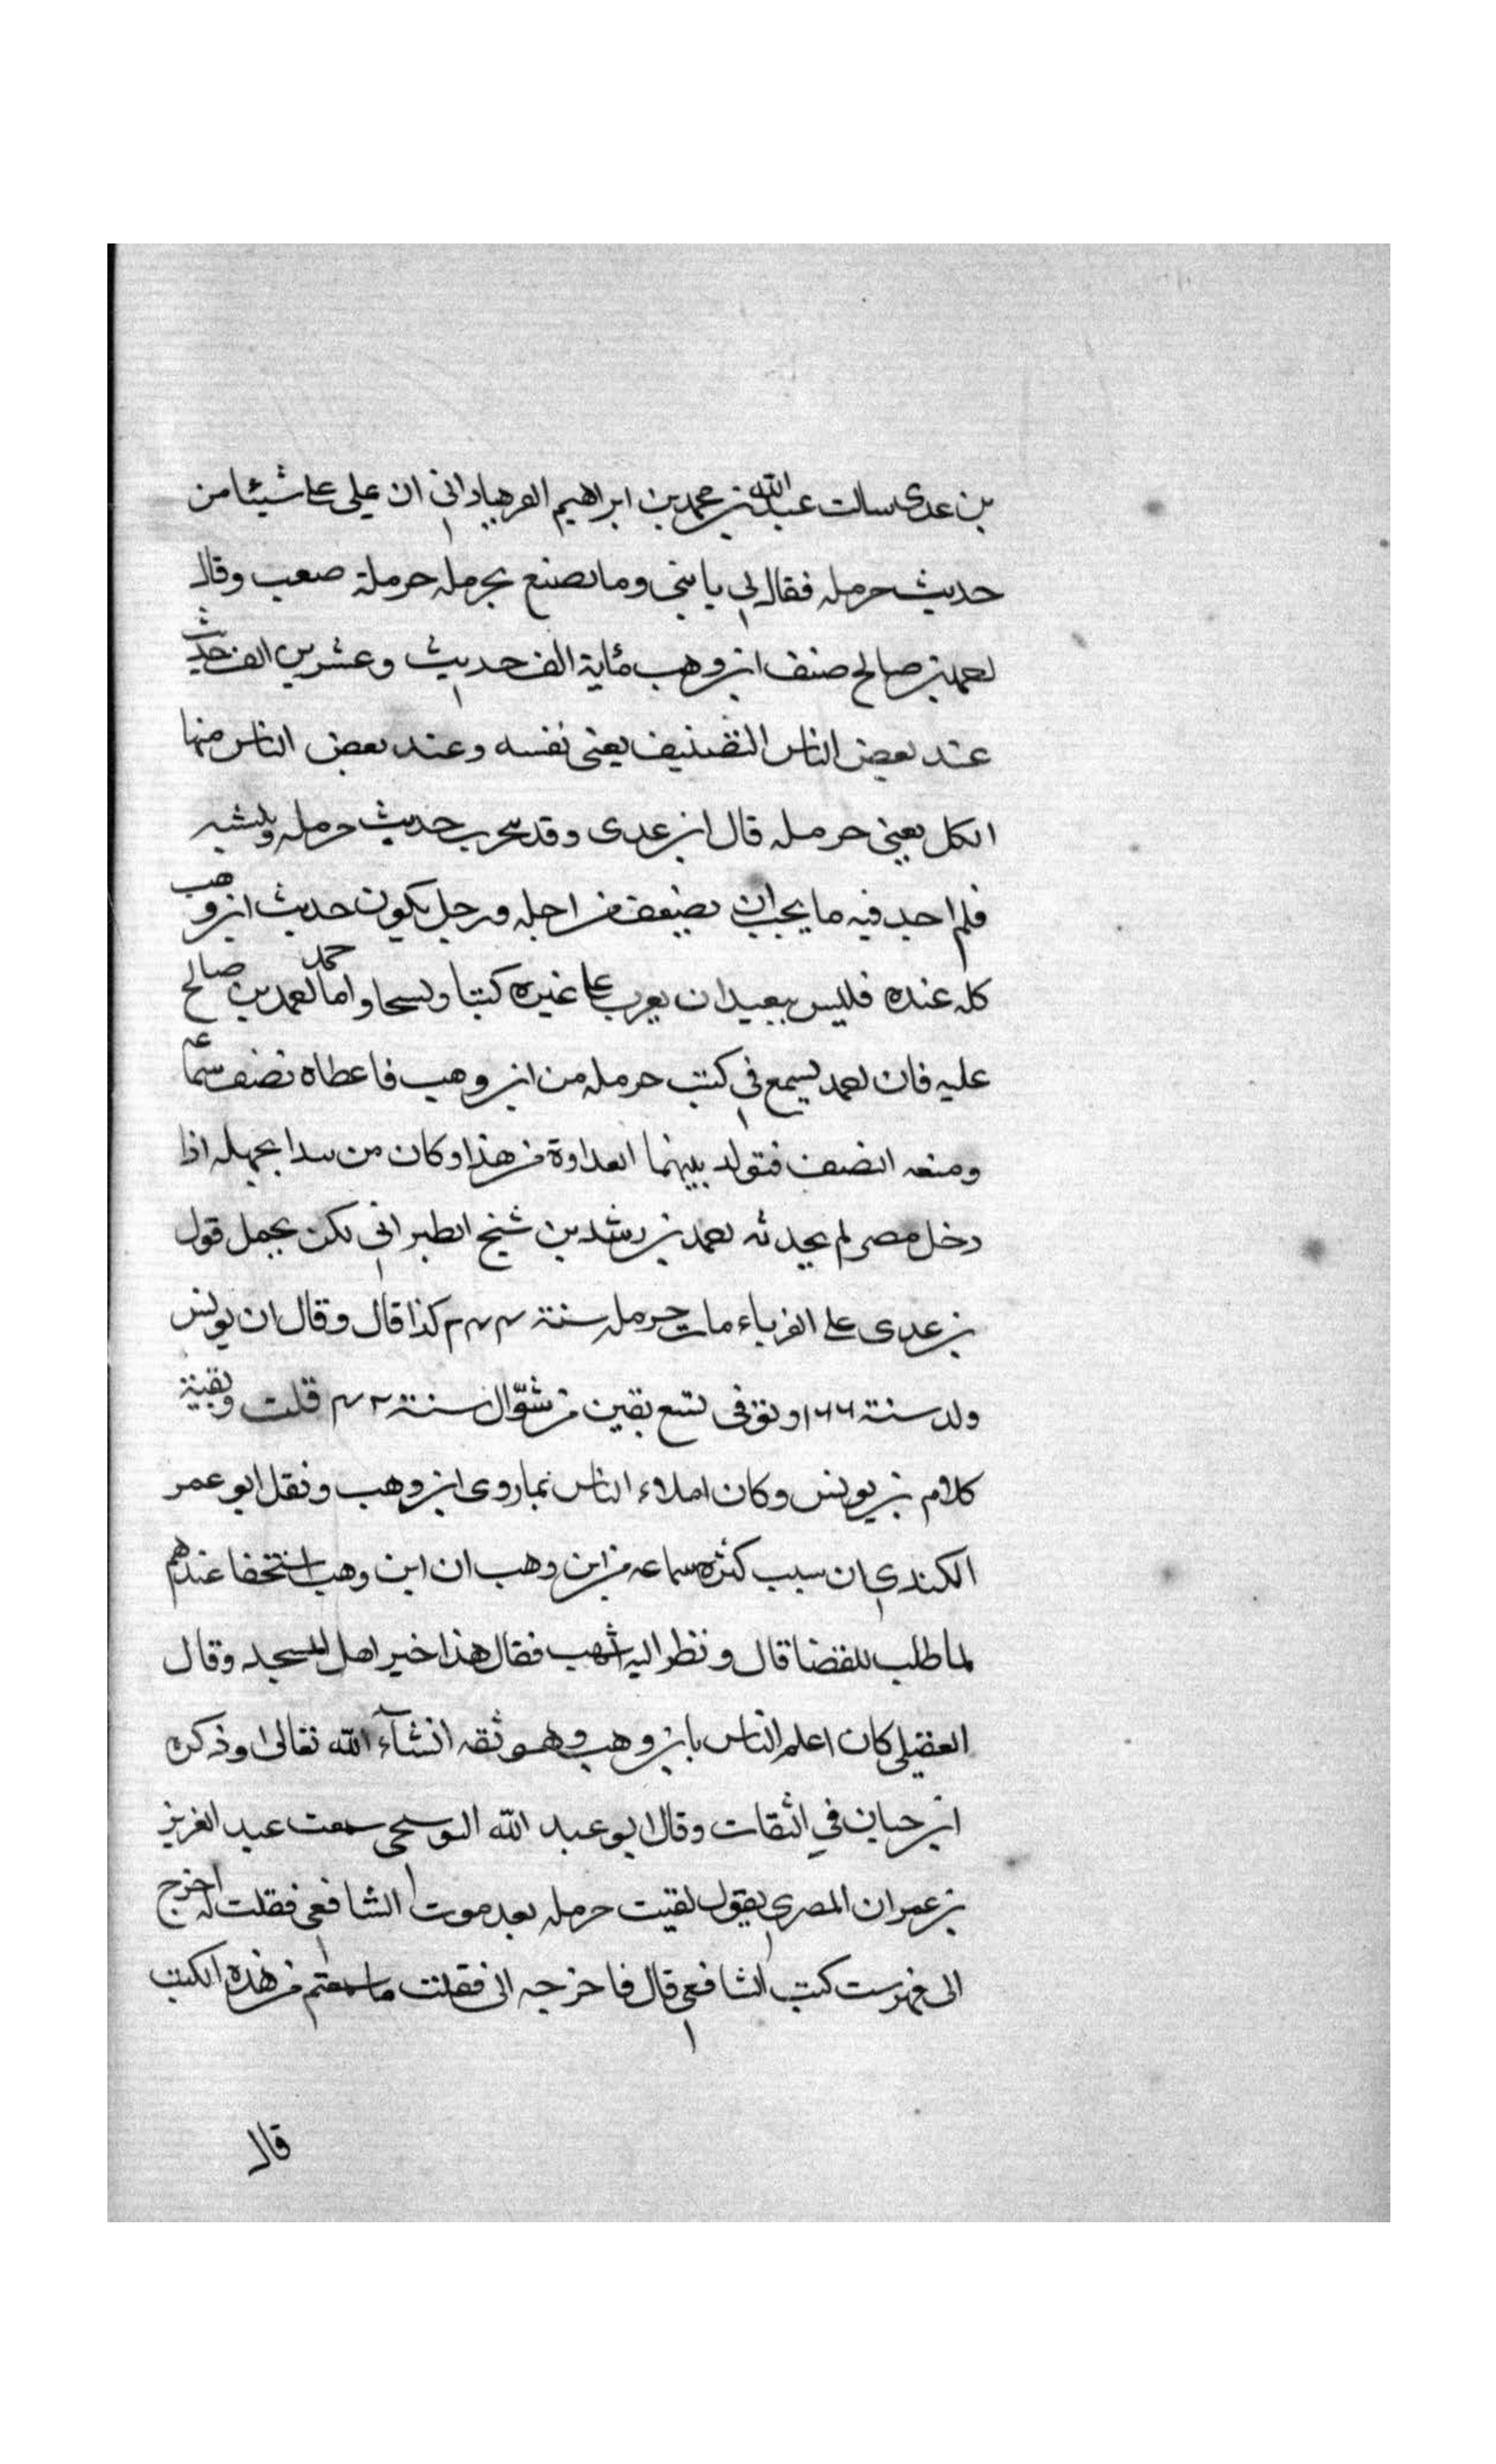 بن عدى سالت عبد الله بن محمد بن ابراهيم الفرهياد انى ان على على شيئا من
حديث حرمله فقال لى يا بنى وما تصنع بحرمله حرملة صعب وقال
احمد بن صالح صنف ابن وهب مئاية الف حديث وعشرين الف حديث
عند بعض الناس النصنيف يعنى نفسه وعند بعض الناس منها
الكل يعنى حرمله قال ابن عدى وقد بحرب حديث حرمله
فلم احد فيه ما يجب ان يضعف من اجله ورجل يكون حديث ابن وهب
كله عنده فليس ببعيد ان يعرب على غيره كتبا ونسحا واما حمد احمد بن صالح
عليه فان احمد يسمع فى كتب حرمله من ابن وهب فاعطاه نصف سماعه
ومنعه النصف فتولد بينهما العداوة من هذا وكان من بيدا بجهله اذا
دخل مصر لم يحدثه احمد بن رشدين شيخ الطبرانى لكن يجمل قول
بن عدى على الغرباء مات حرمله سنة ٢٤٤ كذا قال وقال ان يونس
ولد سنة ١٦٦ وتوفى لتسع بقين من شوّال سنة ٢٤ قلت وبقية
كلام بن يونس وكان املاء الناس بما روى ابن وهب ونقل ابو عمر
الكندى ان سبب كثره سماعه من ابن وهب ان ابن وهب استخفا عندهم
لما طلب للقضا قال ونظر اليه اشهب فقال هذا خير اهل المسجد وقال
العقيلى كان اعلم الناس بابن وهب وهو ثقه انشآء الله تعالى وذكره
ابن حبان في الثقات وقال ابو عبد الله البوسحى سمعت عبد العزيز
بن عمران المصرى يقول لقيت حرمله بعد موت الشافعى فقلت له اخرج
الى فهرست كتب الشافعى قال فاخرجه الى فقلت ما سمعتم من هذه الكتب
قال